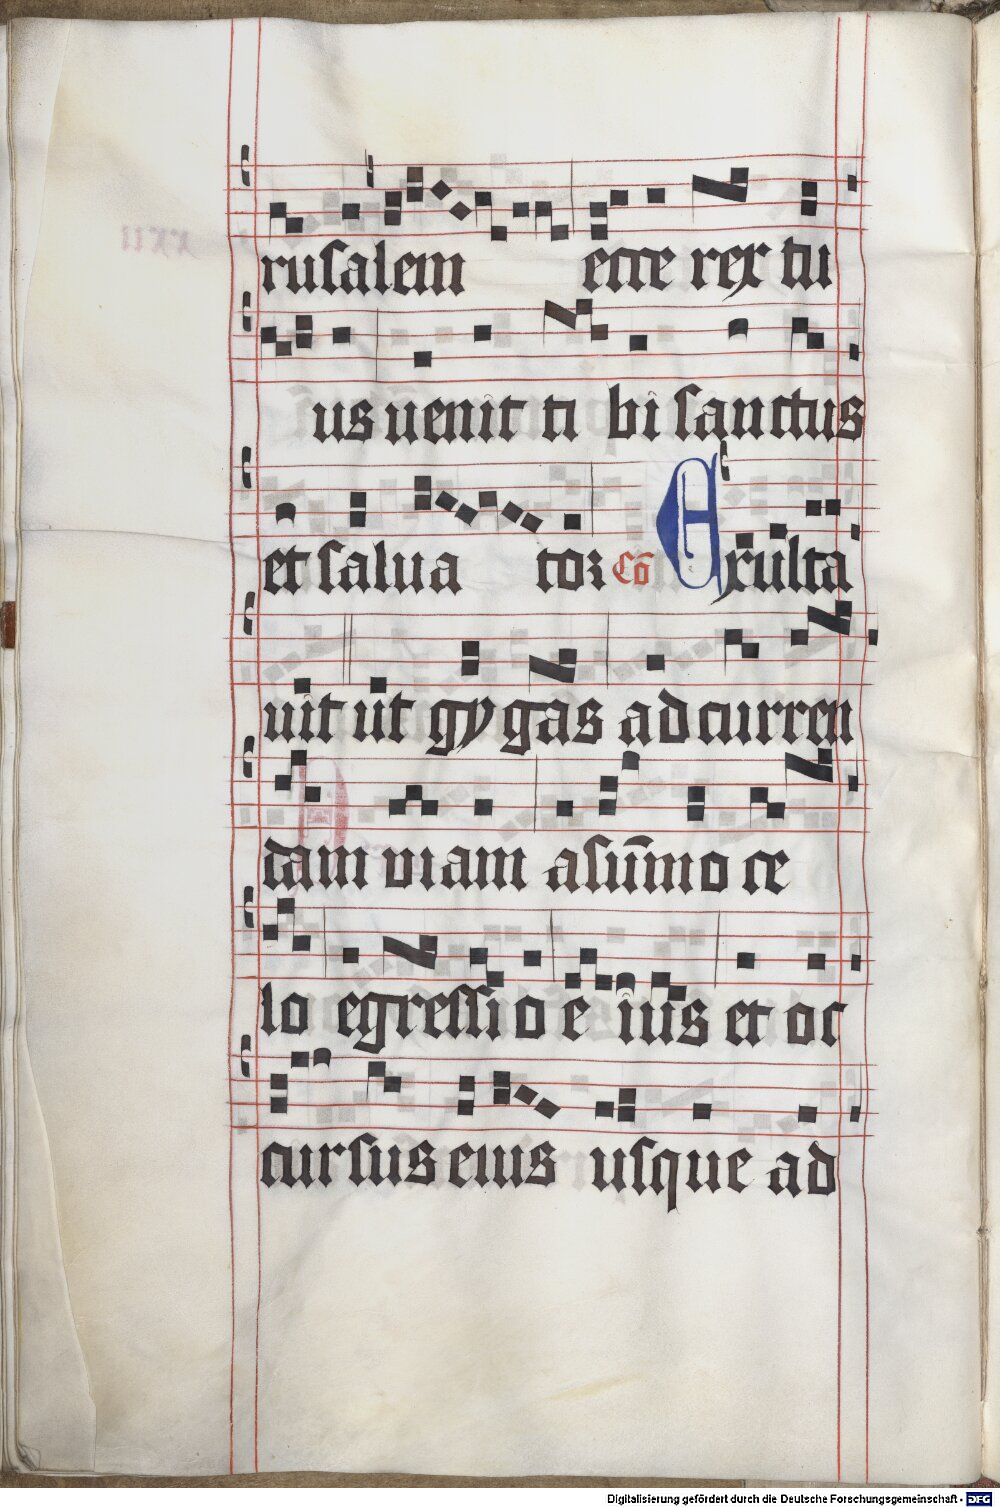 rusalem ecce rex tu
us uenit ti bi sanctus
et salua tor Cō Exulta
uit ut gygas ad curren
dam uiam a sūmo ce
lo egressio e ius et oc
cursus eius usque ad
Digitalisierung gefördert durch die Deutsche Forschungsgemeinschaft - DFG